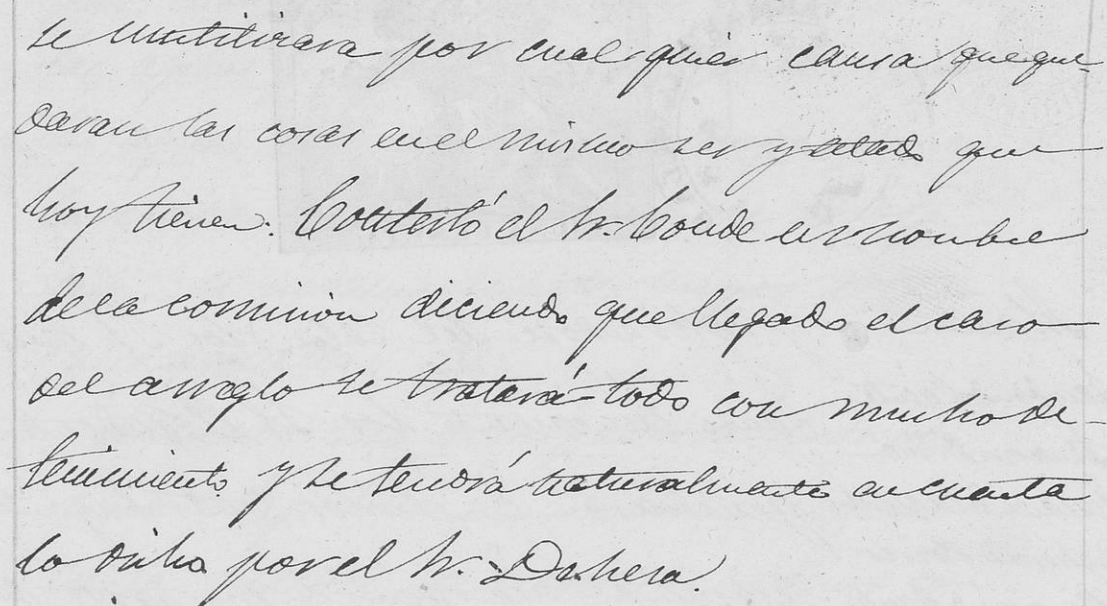 se inutilizara por cualquier causa que que-
daran las cosas en el mismo ser y estado que
hoy tienen. Contestó el Sr. Conde en nombre
de la comision diciendo que llegado el caso
del arreglo se tratará todo con mucho de-
tenimiento y se tendrá naturalmente en cuenta
lo dicho por el Sr. Dehesa.